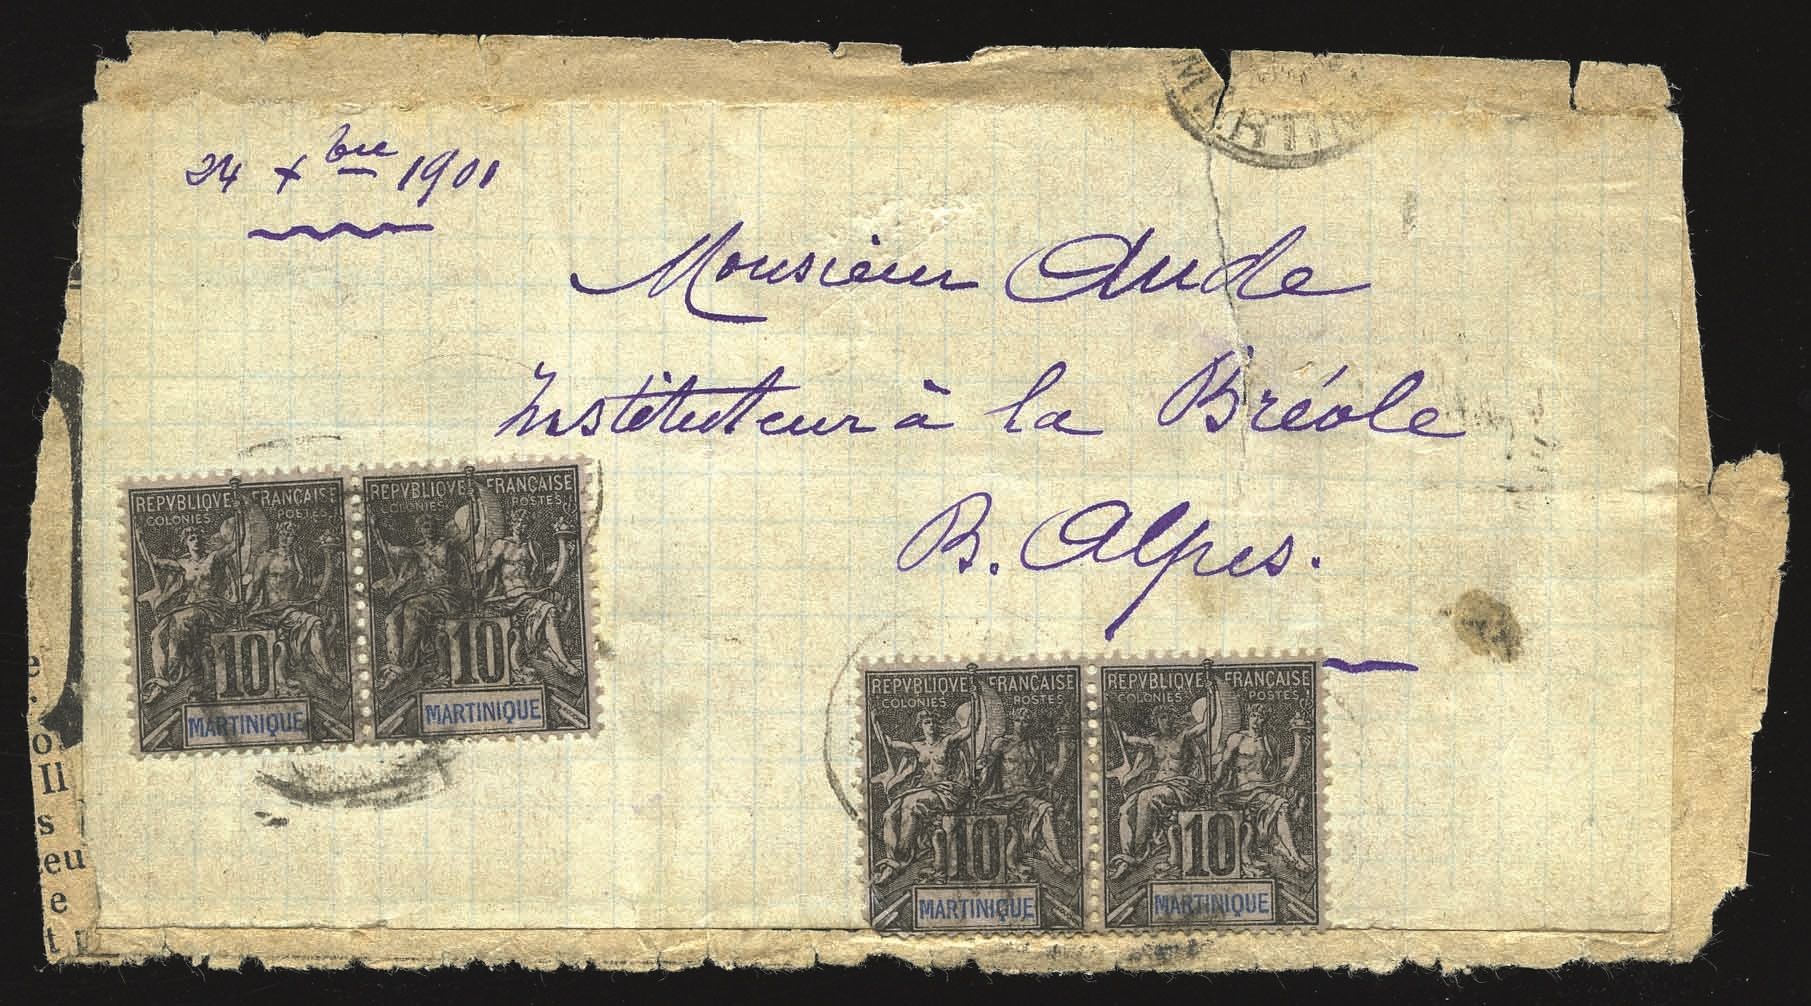 MARTIN
24 Xbre 1901
Monsieur Aude
Instituteur à la Bréole
B. Alpes.
REPVBLIQVE FRANÇAISE
COLONIES POSTES
10
MARTINIQUE
REPVBLIQVE FRANÇAISE
COLONIES POSTES
10
MARTINIQUE
REPVBLIQVE FRANÇAISE
COLONIES POSTES
10
MARTINIQUE
REPVBLIQVE FRANÇAISE
COLONIES POSTES
10
MARTINIQUE
e
Il
s
eu
e
t